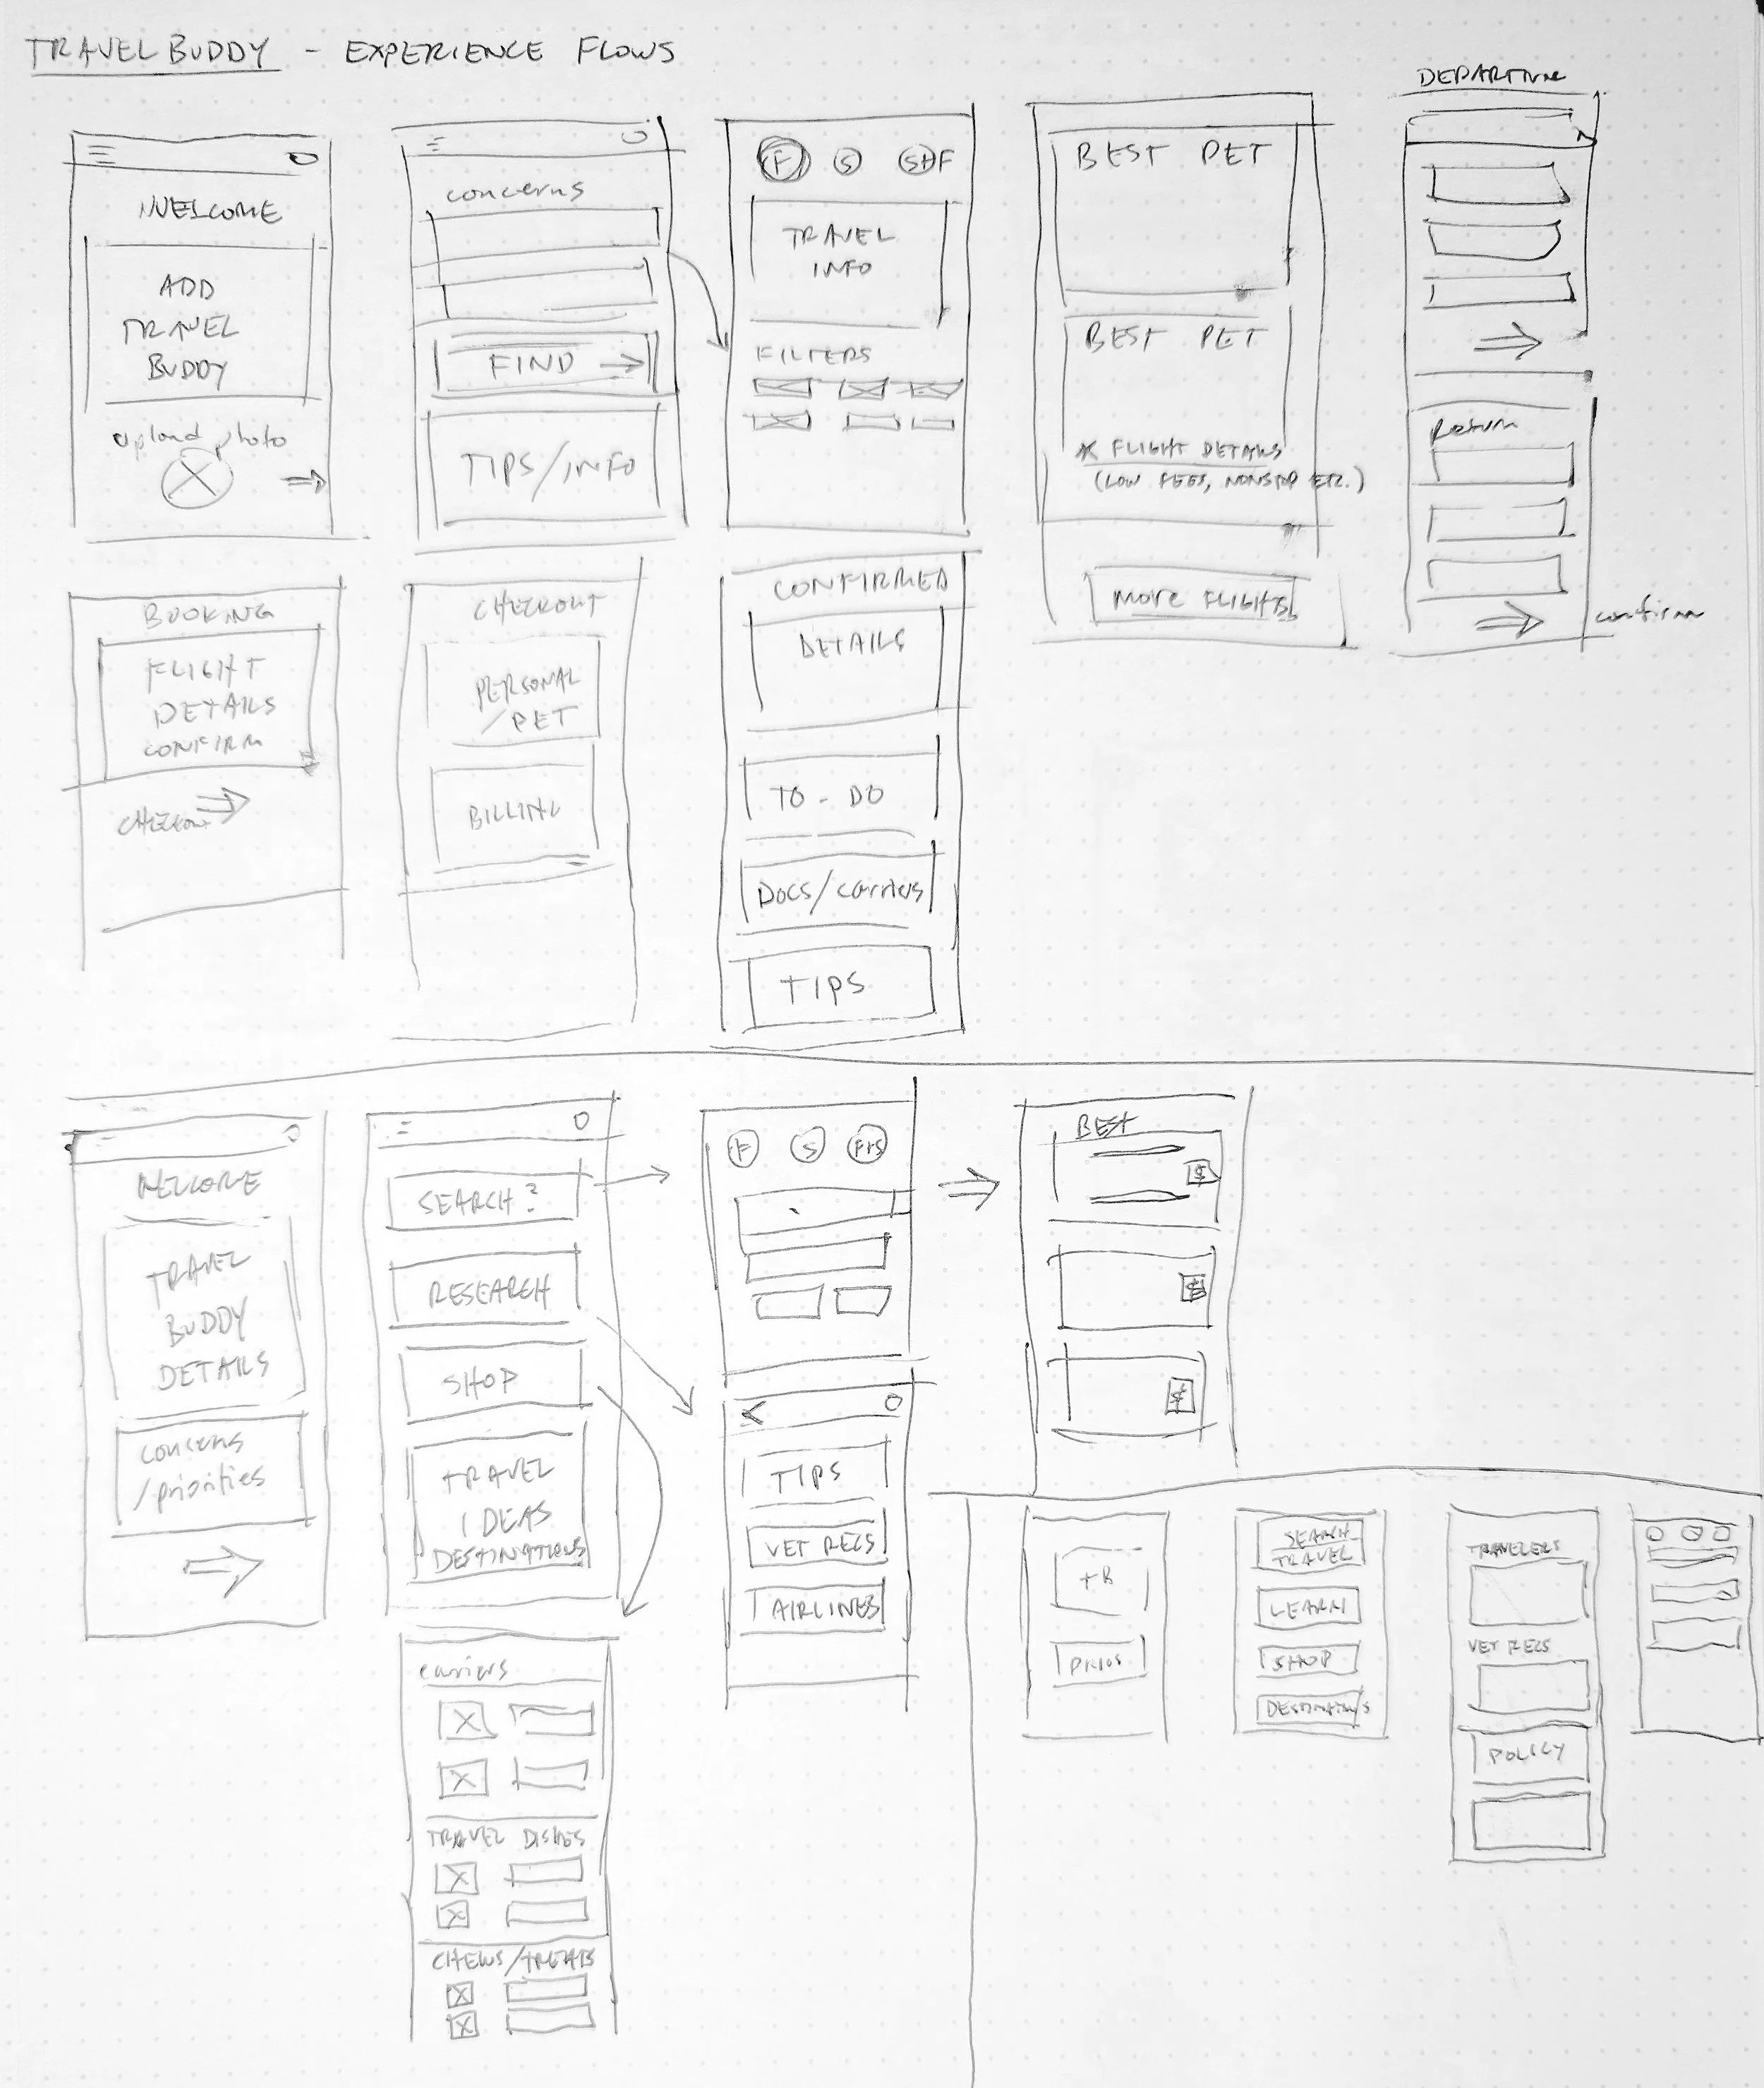 TRAVEL BUDDY - EXPERIENCE FLOWS
WELCOME
ADD
TRAVEL
BUDDY
upload photo
concerns
FIND
TIPS/INFO
F S S+F
TRAVEL
INFO
FILTERS
BEST PET
BEST PET
* FLIGHT DETAILS
(LOW FEES, NONSTOP ETC.)
MORE FLIGHTS
DEPARTURE
Return
confirm
BOOKING
FLIGHT
DETAILS
CONFIRM
CHECKOUT
CHECKOUT
PERSONAL
/PET
BILLING
CONFIRMED
DETAILS
TO-DO
DOCS/carriers
TIPS
WELCOME
TRAVEL
BUDDY
DETAILS
concerns
/priorities
SEARCH?
RESEARCH
SHOP
TRAVEL
IDEAS
DESTINATIONS
carriers
TRAVEL DISHES
CHEWS/TREATS
F S F+S
TIPS
VET RECS
AIRLINES
BEST
$
$
$
TB
PRIOS
SEARCH
TRAVEL
LEARN
SHOP
DESTINATIONS
TRAVELERS
VET RECS
POLICY